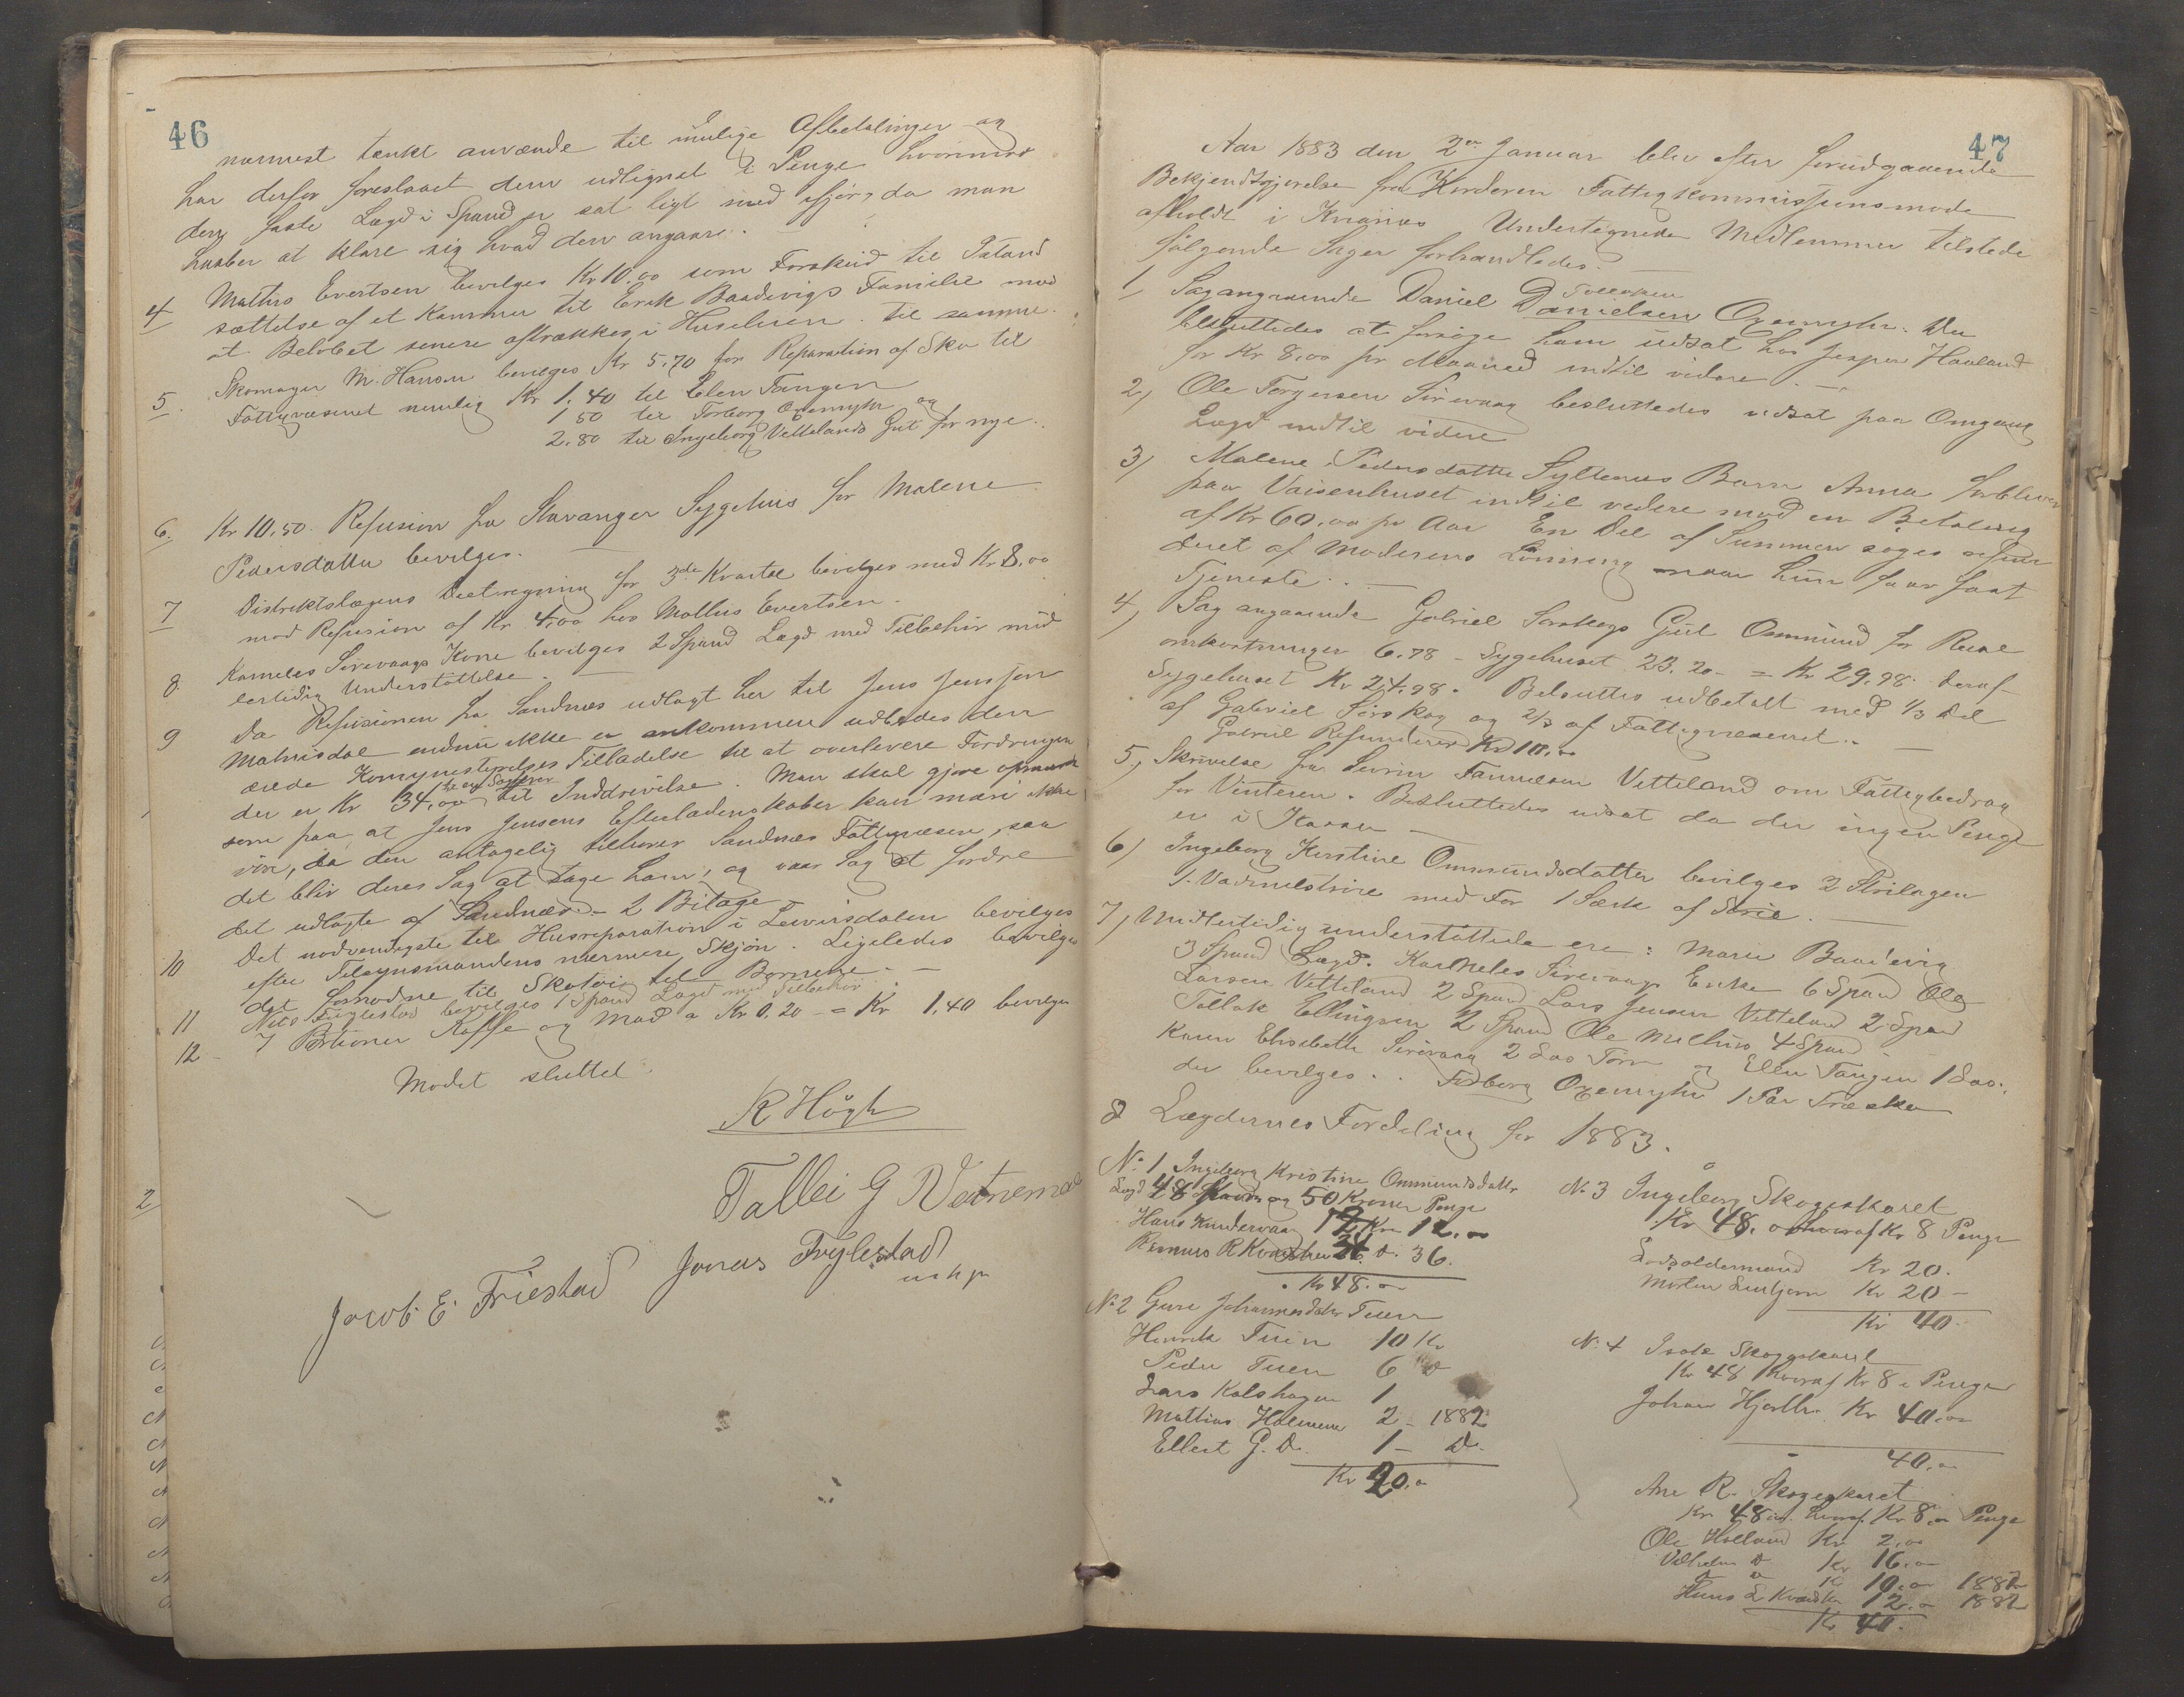 46
nærmest tænkt anvænde til mulige Afbetalinger og
har derfor foreslaaet dem udlignet i Penge hvorimod
den faste Lægd i Spand er sat ligt med ifjor, da man
haaber at klare sig hvad den angaar.
4 Mathis Evertsen bevilges Kr 10.00 som Forskud til Istand
sættelse af et Kammer til Erik Baadevigs Familie mod
at Beløbet senere aftrækkes i Huseleien til samme.
5. Skomager M. Hansen bevilges Kr 5.70 for Reparation af Sko til
Fattigvæsenet nemlig Kr 1.40 til Elen Tangen
1.50 til Torborg Oxemyhr og
2.80 til Ingeborg Vettelands Gut for nye.
6. Kr 10.50. Refusion fra Stavanger Sygehus for Malene
Pedersdatter bevilges.
7 Distriktslægens Diætregning for 3de Kvartal bevilges med Kr 8.00
mod Refusion af Kr. 4.00 hos Mathis Evertsen.
8. Kornelis Sirevaags Kone bevilges 2 Spand Lægd med Tilbehør mid
lertidig Understøttelse.
9 Da Refusionen fra Sandnæs udlagt her til Jens Jensen
Malmisdal endnu ikke er ankommen udbedes den
ærede Komunestyrelses Tilladelse til at overlevere Fordringen
der er Kr 34.00 til Inddrivelse. Man skal gjøre opmærk
som paa, at Jens Jensens Efterladenskaber kan man ikke
røre, da den antagelig tilhører Sandnæs Fattigvæsen, saa
det bliv deres Sag at tage ham, og vaar Sag at fordre
det udlagte af Sandnæs - 2 Bilage
10 Det nødvendigste til Husreparation i Leviisdalen bevilges
efter Tilsynsmandens nærmere Skjøn. Ligeledes bevilges
det fornødne til Skotøi til Børnene.
11 Nils Fuglestad bevilges 1 Spand Lægd med Tilbehør
12 - 7 Portioner Kaffe og Mad a Kr 0.20 - = Kr 1.40 bevilges
Mødet sluttet
R Høgh
Tallei G Vetnemo
Jonas Fuglestad
Jacob. E. Friestad
47
Aar 1883 den 2en Januar blev efter forudgaaende
Bekjendtgjørelse fra Værderen Fattigkommissionsmøde
afholdt i Kvanæs Undertegnede Medlemmer tilstede
følgende Sager forhandledes.
1 Sag angaaende Daniel D Tollaksen
Danielsen Oxemyhr. Der
besluttedes at forsøge ham udsat hos Jesper Haaland
for Kr 8.00 pr Maaned indtil videre.
2, Ole Torgersen Sirevaag besluttedes udsat paa Omgang
Lægd indtil videre
3, Malene Pedersdatter Syltenæs Barn Anna forbliver
paa Vaisenhuset indtil videre mod en Betaling
af Kr 60.00 pr Aar En Del af Summen søges refun
deret af Moderens Lønning naar hun faar fast
Tjeneste.
4, Sag angaaende Gabriel Sørskogs Gut Ommund for Reise
omkostninger 6.78 - Sygehuset 23.20 - = Kr 29.98. deraf
Sygehuset Kr 24.98. Besluttes udbetalt med 1/3 Del
af Gabriel Sørskog og 2/3 af Fattigvæsenet.
Gabriel Refunderer Kr 10.00
5, Skrivelse fra Severin Samuelsen Vetteland om Fattigbedrag
for Vinteren. Besluttedes udsat da der ingen Penge
er i Kassen
6, Ingeborg Kirstine Ommundsdatter bevilges 2 Strilagen
1 Vadmelstrøie med For 1 Særk af Strie.
7, Midlertidig understøttede ere: Maren Baadevig
3 Spand Lægd. Kornelis Sirevaags Enke 6 Spand Ole
Larsen Vetteland 2 Spand Lars Jensen Vetteland 2 Spand
Tollak Ellingsen 2 Spand Ole Mathis 4 Spand
Karen Elisabeth Sirevaag 2 Las Torv og Ellen Tangen 1 Las.
der bevilges. Torborg Oxemyhr 1 Par Træsko
8 Lægdernes Fordeling for 1883.
No. 1 Ingeborg Kristine Ommundsdatter
Lægd 48 Kroner og 50 Kroner Penge
Hans 12 Kr 12.00
Rasmus R Kvassheim 36 D. 36.
Kr 48.00
No 2 Guri Johannesdatter Tuen
Henrik Tuen 10 Kr
Peder Tuen 6 D
Lars Kalshagen 1
Mathias Holmene 2 - 1882
Ellert G. D. 1 - D.
Kr 20.00
No 3 Ingeborg Skogeskaret
Kr 48. hvoraf Kr 8 Penge
Lodsoldermand Kr 20.
Morten Kr 20 -
Kr 40
No 4 Isak Skogeskaret
Kr 48 hvoraf Kr 8 i Penge
Johan Hjorth Kr 40.00
40.00
Ane R. Skogeskaret
Kr 48.00 hvoraf Kr 8.00 Penge
Ole Holland Kr 2.00
Vilhelm D Kr 16.00
D D Kr 10.00 1882
Hans L Kr 12.00 1882
Kr 40.